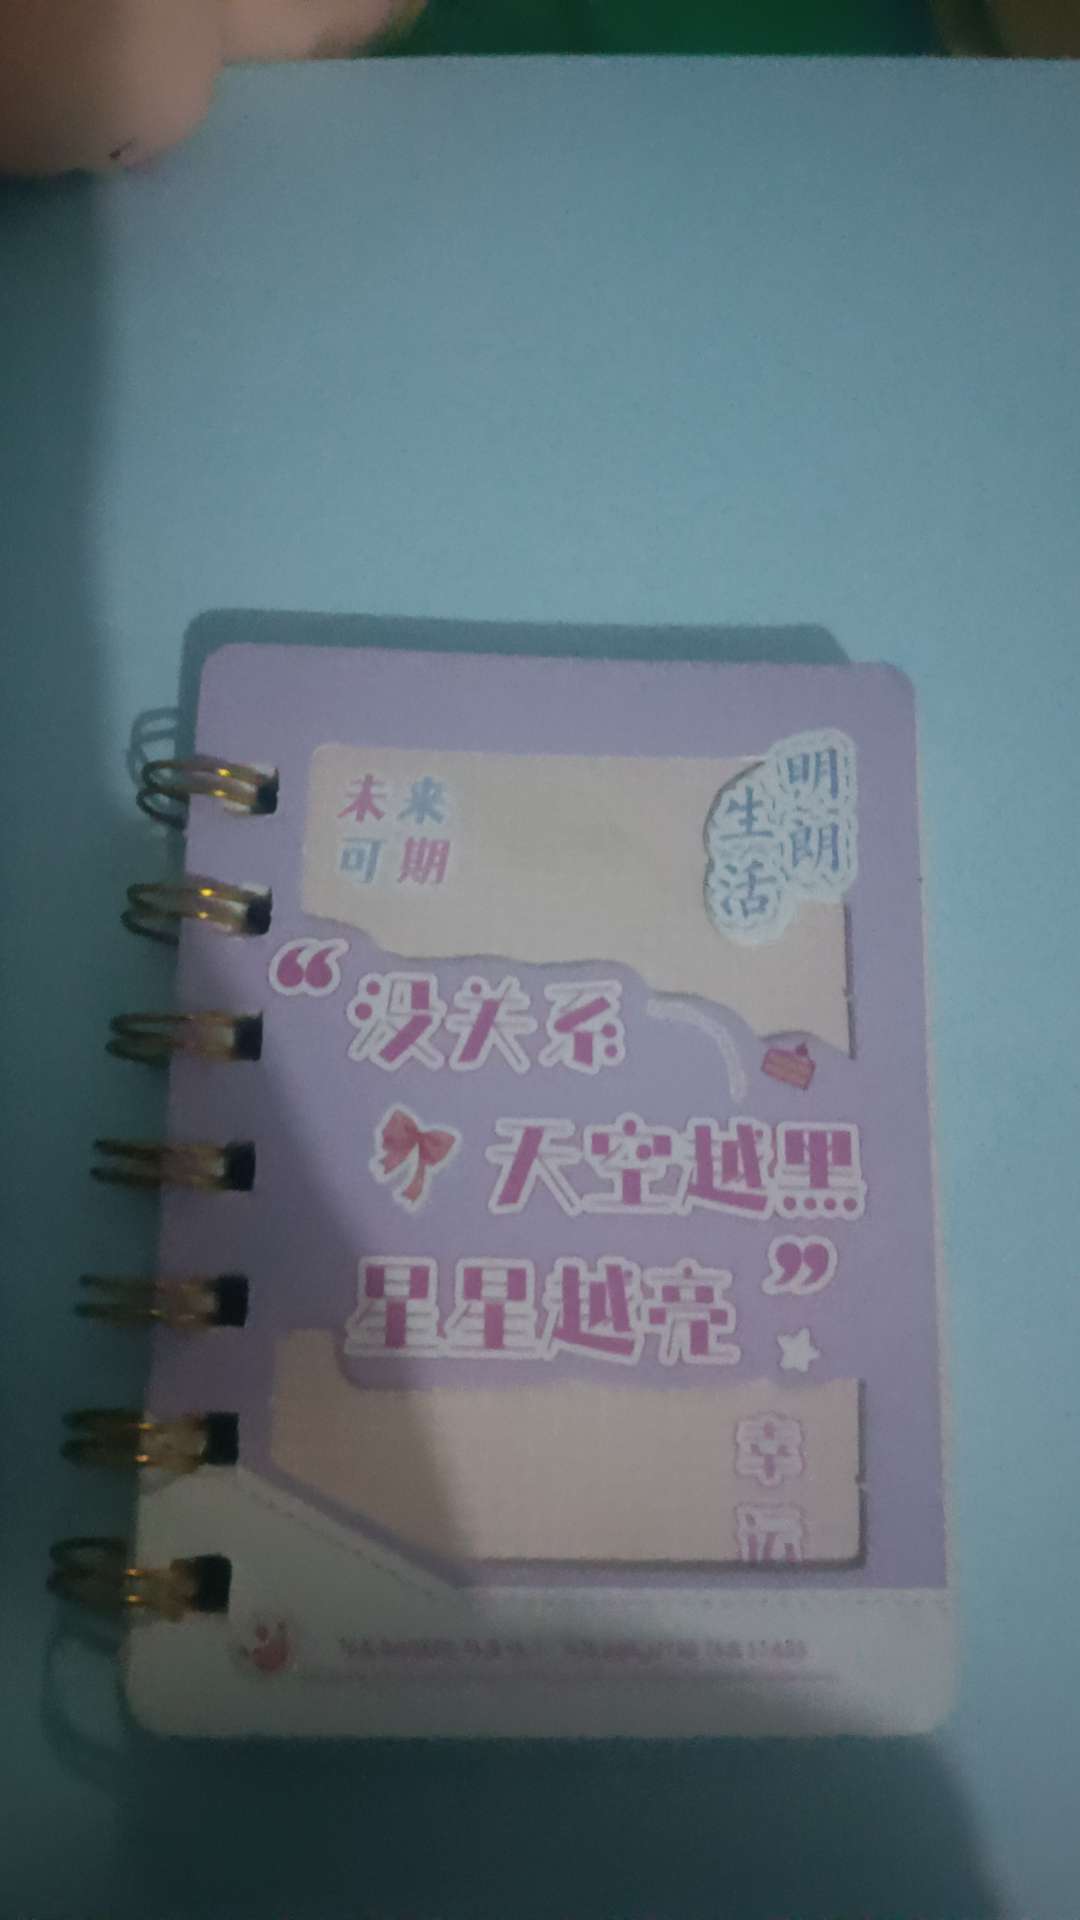 未来
可期
明朗
生活
“没关系
天空越黑
星星越亮”
幸
运